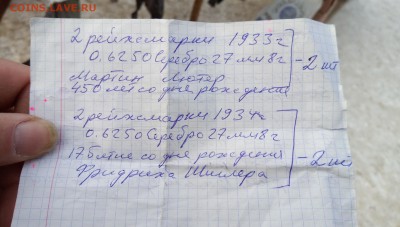 COINS.SU LAVE.RU
2 рейхсмарки 1933г
0.6250 Серебро 27мм 8г - 2 шт
Мартин Лютер
450 лет со дня рождения
2 рейхсмарки 1934г
0.6250 Серебро 27мм 8г
175 летие со дня рождения - 2 шт
Фридриха Шиллера